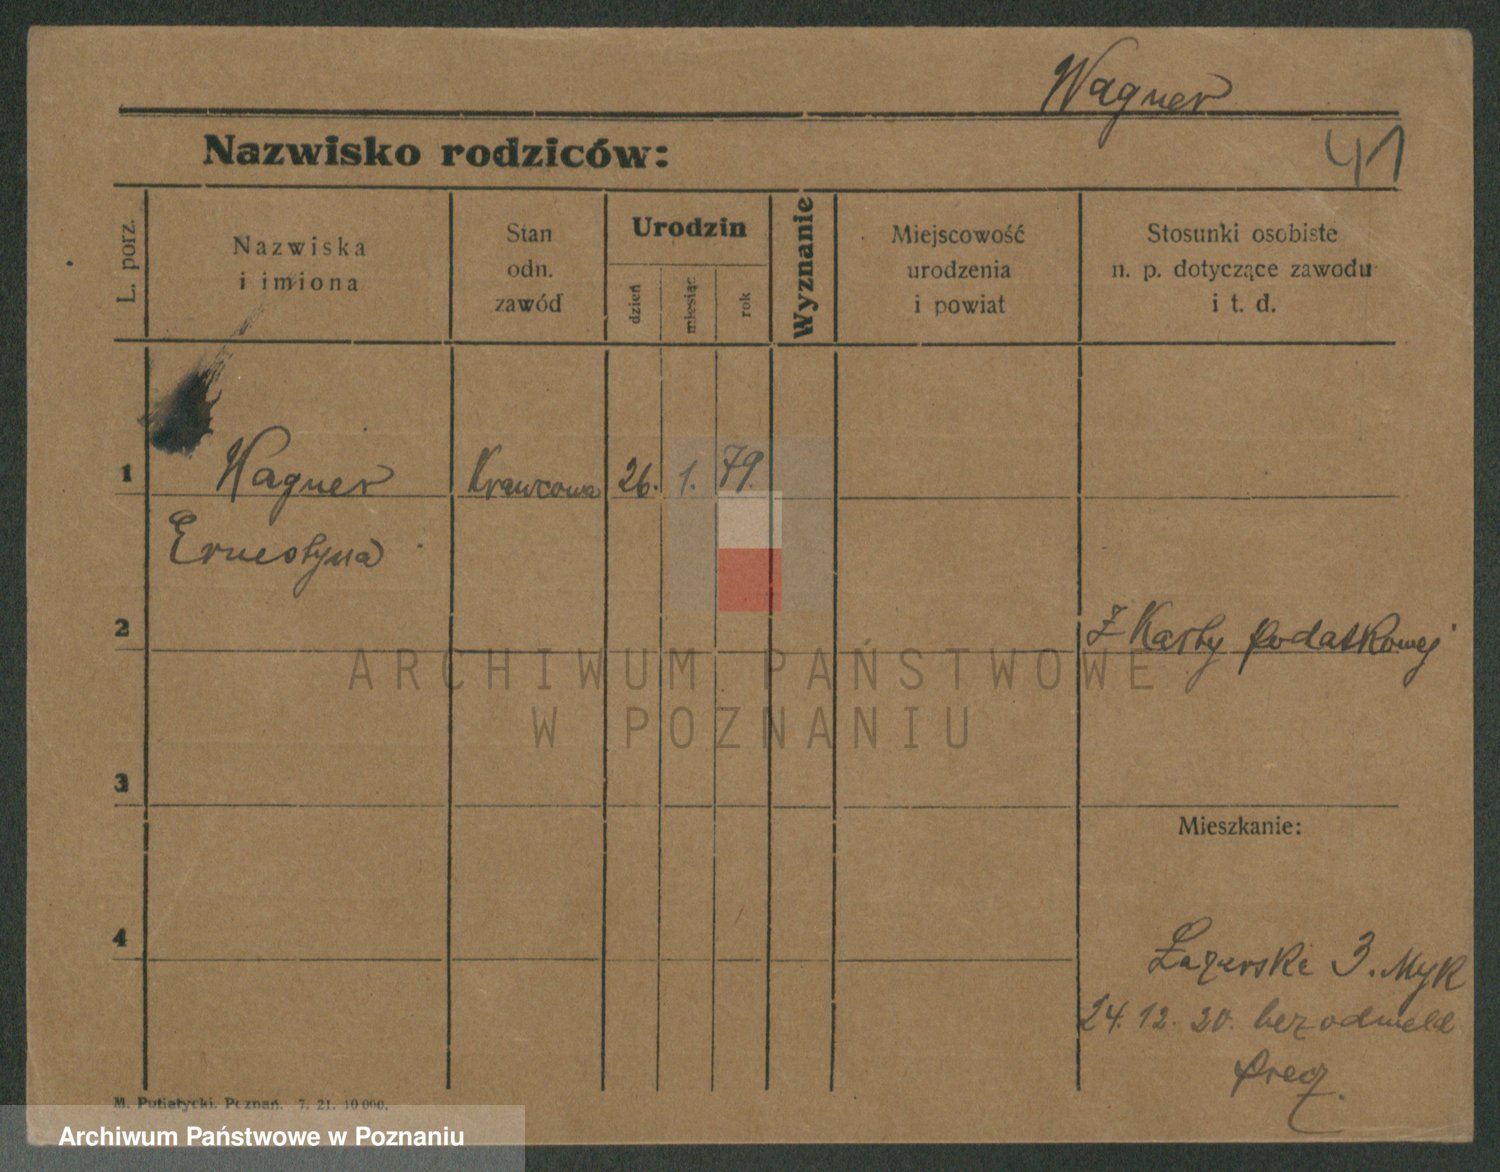 Wagner
41
Nazwisko rodziców:
L. porz.
Nazwiska
i imiona
Stan
odn.
zawód
Urodzin
dzień
miesiąc
rok
Wyznanie
Miejscowość
urodzenia
i powiat
Stosunki osobiste
n. p. dotyczące zawodu
i t. d.
1
Wagner Krawcowa 26. 1. 79.
Ernestyna
2
Z Karty podatkowej
ARCHIWUM PAŃSTWOWE
W POZNANIU
3
Mieszkanie:
4
Łazarski 3. Myk
24. 12. 20. bez odmeld
precz.
M. Putiatycki. Poznań. 7. 21. 10 000.
Archiwum Państwowe w Poznaniu